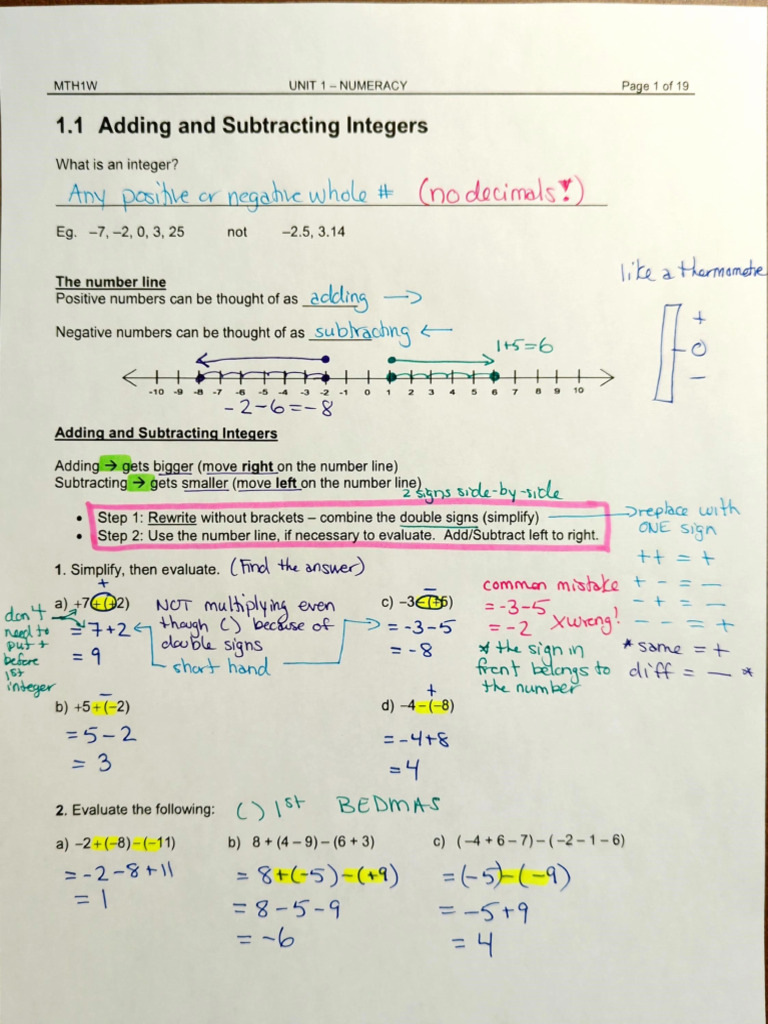 MTH1W UNIT 1 – NUMERACY Page 1 of 19
1.1 Adding and Subtracting Integers
What is an integer?
Any positive or negative whole # (no decimals!)
Eg. –7, –2, 0, 3, 25 not –2.5, 3.14
like a thermomete
The number line
Positive numbers can be thought of as adding →
+
0
–
Negative numbers can be thought of as subtracting ←
1+5=6
-10 -9 -8 -7 -6 -5 -4 -3 -2 -1 0 1 2 3 4 5 6 7 8 9 10
-2-6=-8
Adding and Subtracting Integers
Adding → gets bigger (move right on the number line)
Subtracting → gets smaller (move left on the number line)
2 signs side-by-side
• Step 1: Rewrite without brackets – combine the double signs (simplify)
• Step 2: Use the number line, if necessary to evaluate. Add/Subtract left to right.
→ replace with
ONE sign
+ + = +
+ - = -
- + = -
- - = +
* same = +
diff = - *
1. Simplify, then evaluate. (Find the answer)
+
a) +7+(+2)
= 7+2
= 9
don't
need to
put +
before
1st
integer
NOT multiplying even
though ( ) because of
double signs
short hand
–
c) –3–(+5)
= -3-5
= -8
common mistake
= -3-5
= -2 X wrong!
* the sign in
front belongs to
the number
–
b) +5+(–2)
= 5-2
= 3
+
d) –4–(–8)
= -4+8
= 4
2. Evaluate the following: ( ) 1st BEDMAS
a) –2+(–8)–(–11)
= -2-8+11
= 1
b) 8 + (4 – 9) – (6 + 3)
= 8+(-5)-(+9)
= 8-5-9
= -6
c) (–4 + 6 – 7) – (–2 – 1 – 6)
= (-5)-(-9)
= -5+9
= 4